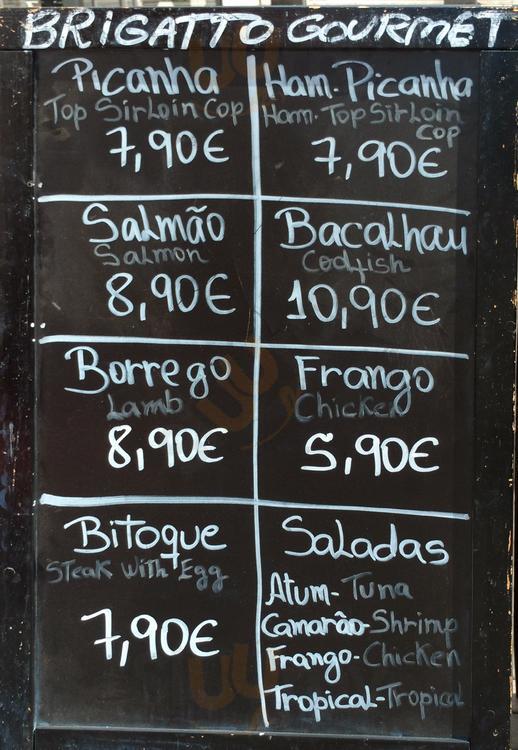 BRIGATTO GOURMET
Picanha
Top Sirloin Cop
7,90€
Ham. Picanha
Ham. Top Sirloin
Cop
7,90€
Salmão
Salmon
8,90€
Bacalhau
Codfish
10,90€
Borrego
Lamb
8,90€
Frango
Chicken
5,90€
Bitoque
Steak With Egg
7,90€
Saladas
Atum-Tuna
Camarão-Shrimp
Frango-Chicken
Tropical-Tropical